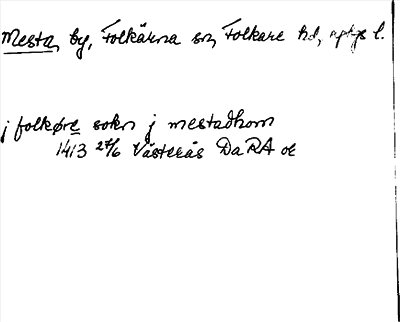 Mesta, by, Folkärna sn, Folkare hd, Kpbgs l.
j folkøre sokn j mestadhom
1413 27/6 Västerås DaRA or